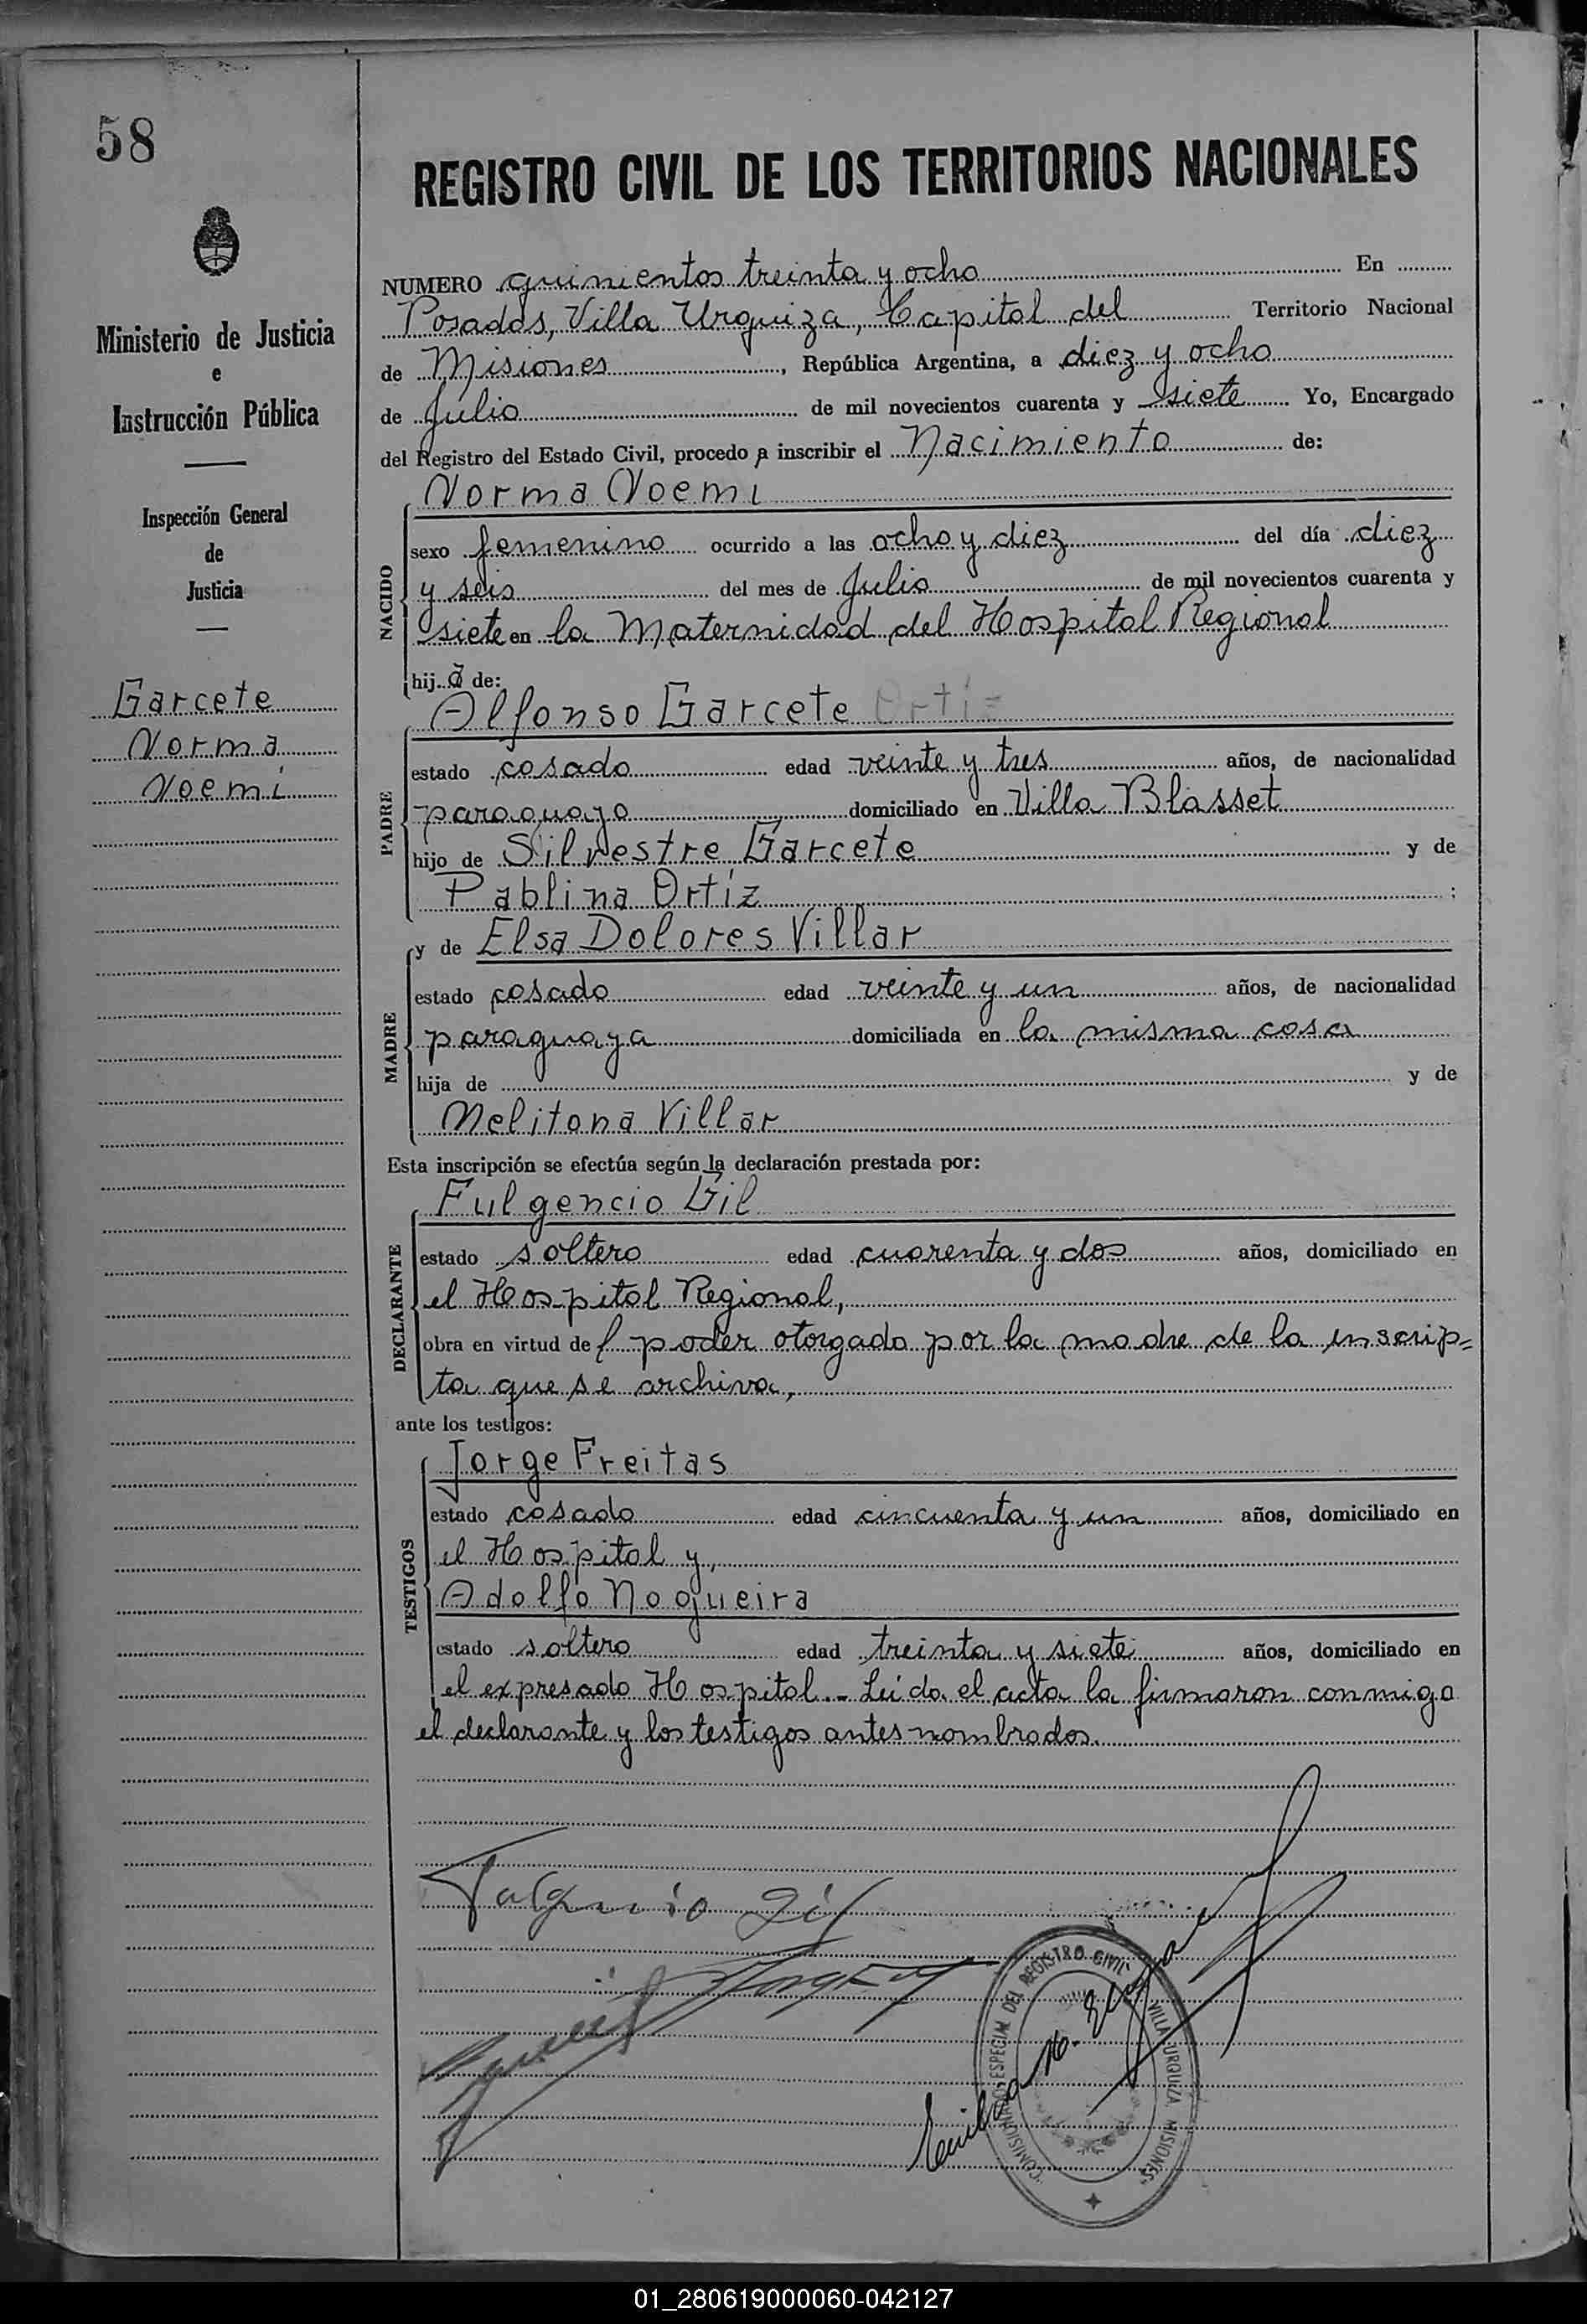 58
REGISTRO CIVIL DE LOS TERRITORIOS NACIONALES
Ministerio de Justicia
e
Instrucción Pública
Inspección General
de
Justicia
Garcete
Norma
Noemí
NUMERO quinientos treinta y ocho En
Posadas, Villa Urquiza, Capital del Territorio Nacional
de Misiones, República Argentina, a diez y ocho
de Julio de mil novecientos cuarenta y siete Yo, Encargado
del Registro del Estado Civil, procedo a inscribir el Nacimiento de:
NACIDO
Norma Noemi
sexo femenino ocurrido a las ocho y diez del día diez
y seis del mes de Julio de mil novecientos cuarenta y
siete en la Maternidad del Hospital Regional
hij a de:
PADRE
Alfonso Garcete Ortiz
estado casado edad veinte y tres años, de nacionalidad
paraguayo domiciliado en Villa Blosset
hijo de Silvestre Garcete y de
Pablina Ortíz ;
MADRE
y de Elsa Dolores Villar
estado casada edad veinte y un años, de nacionalidad
paraguaya domiciliada en la misma casa
hija de y de
Melitona Villar
Esta inscripción se efectúa según la declaración prestada por:
DECLARANTE
Fulgencio Gil
estado soltero edad cuarenta y dos años, domiciliado en
el Hospital Regional,
obra en virtud del poder otorgado por la madre de la inscrip=
ta que se archiva,
ante los testigos:
TESTIGOS
Jorge Freitas
estado casado edad cincuenta y un años, domiciliado en
el Hospital y,
Adolfo Nogueira
estado soltero edad treinta y siete años, domiciliado en
el expresado Hospital.- Leída el acta la firmaron conmigo
el declarante y los testigos antes nombrados.
Fulgencio Gil
REGISTRO CIVIL
VILLA URQUIZA MISIONES
01_280619000060-042127